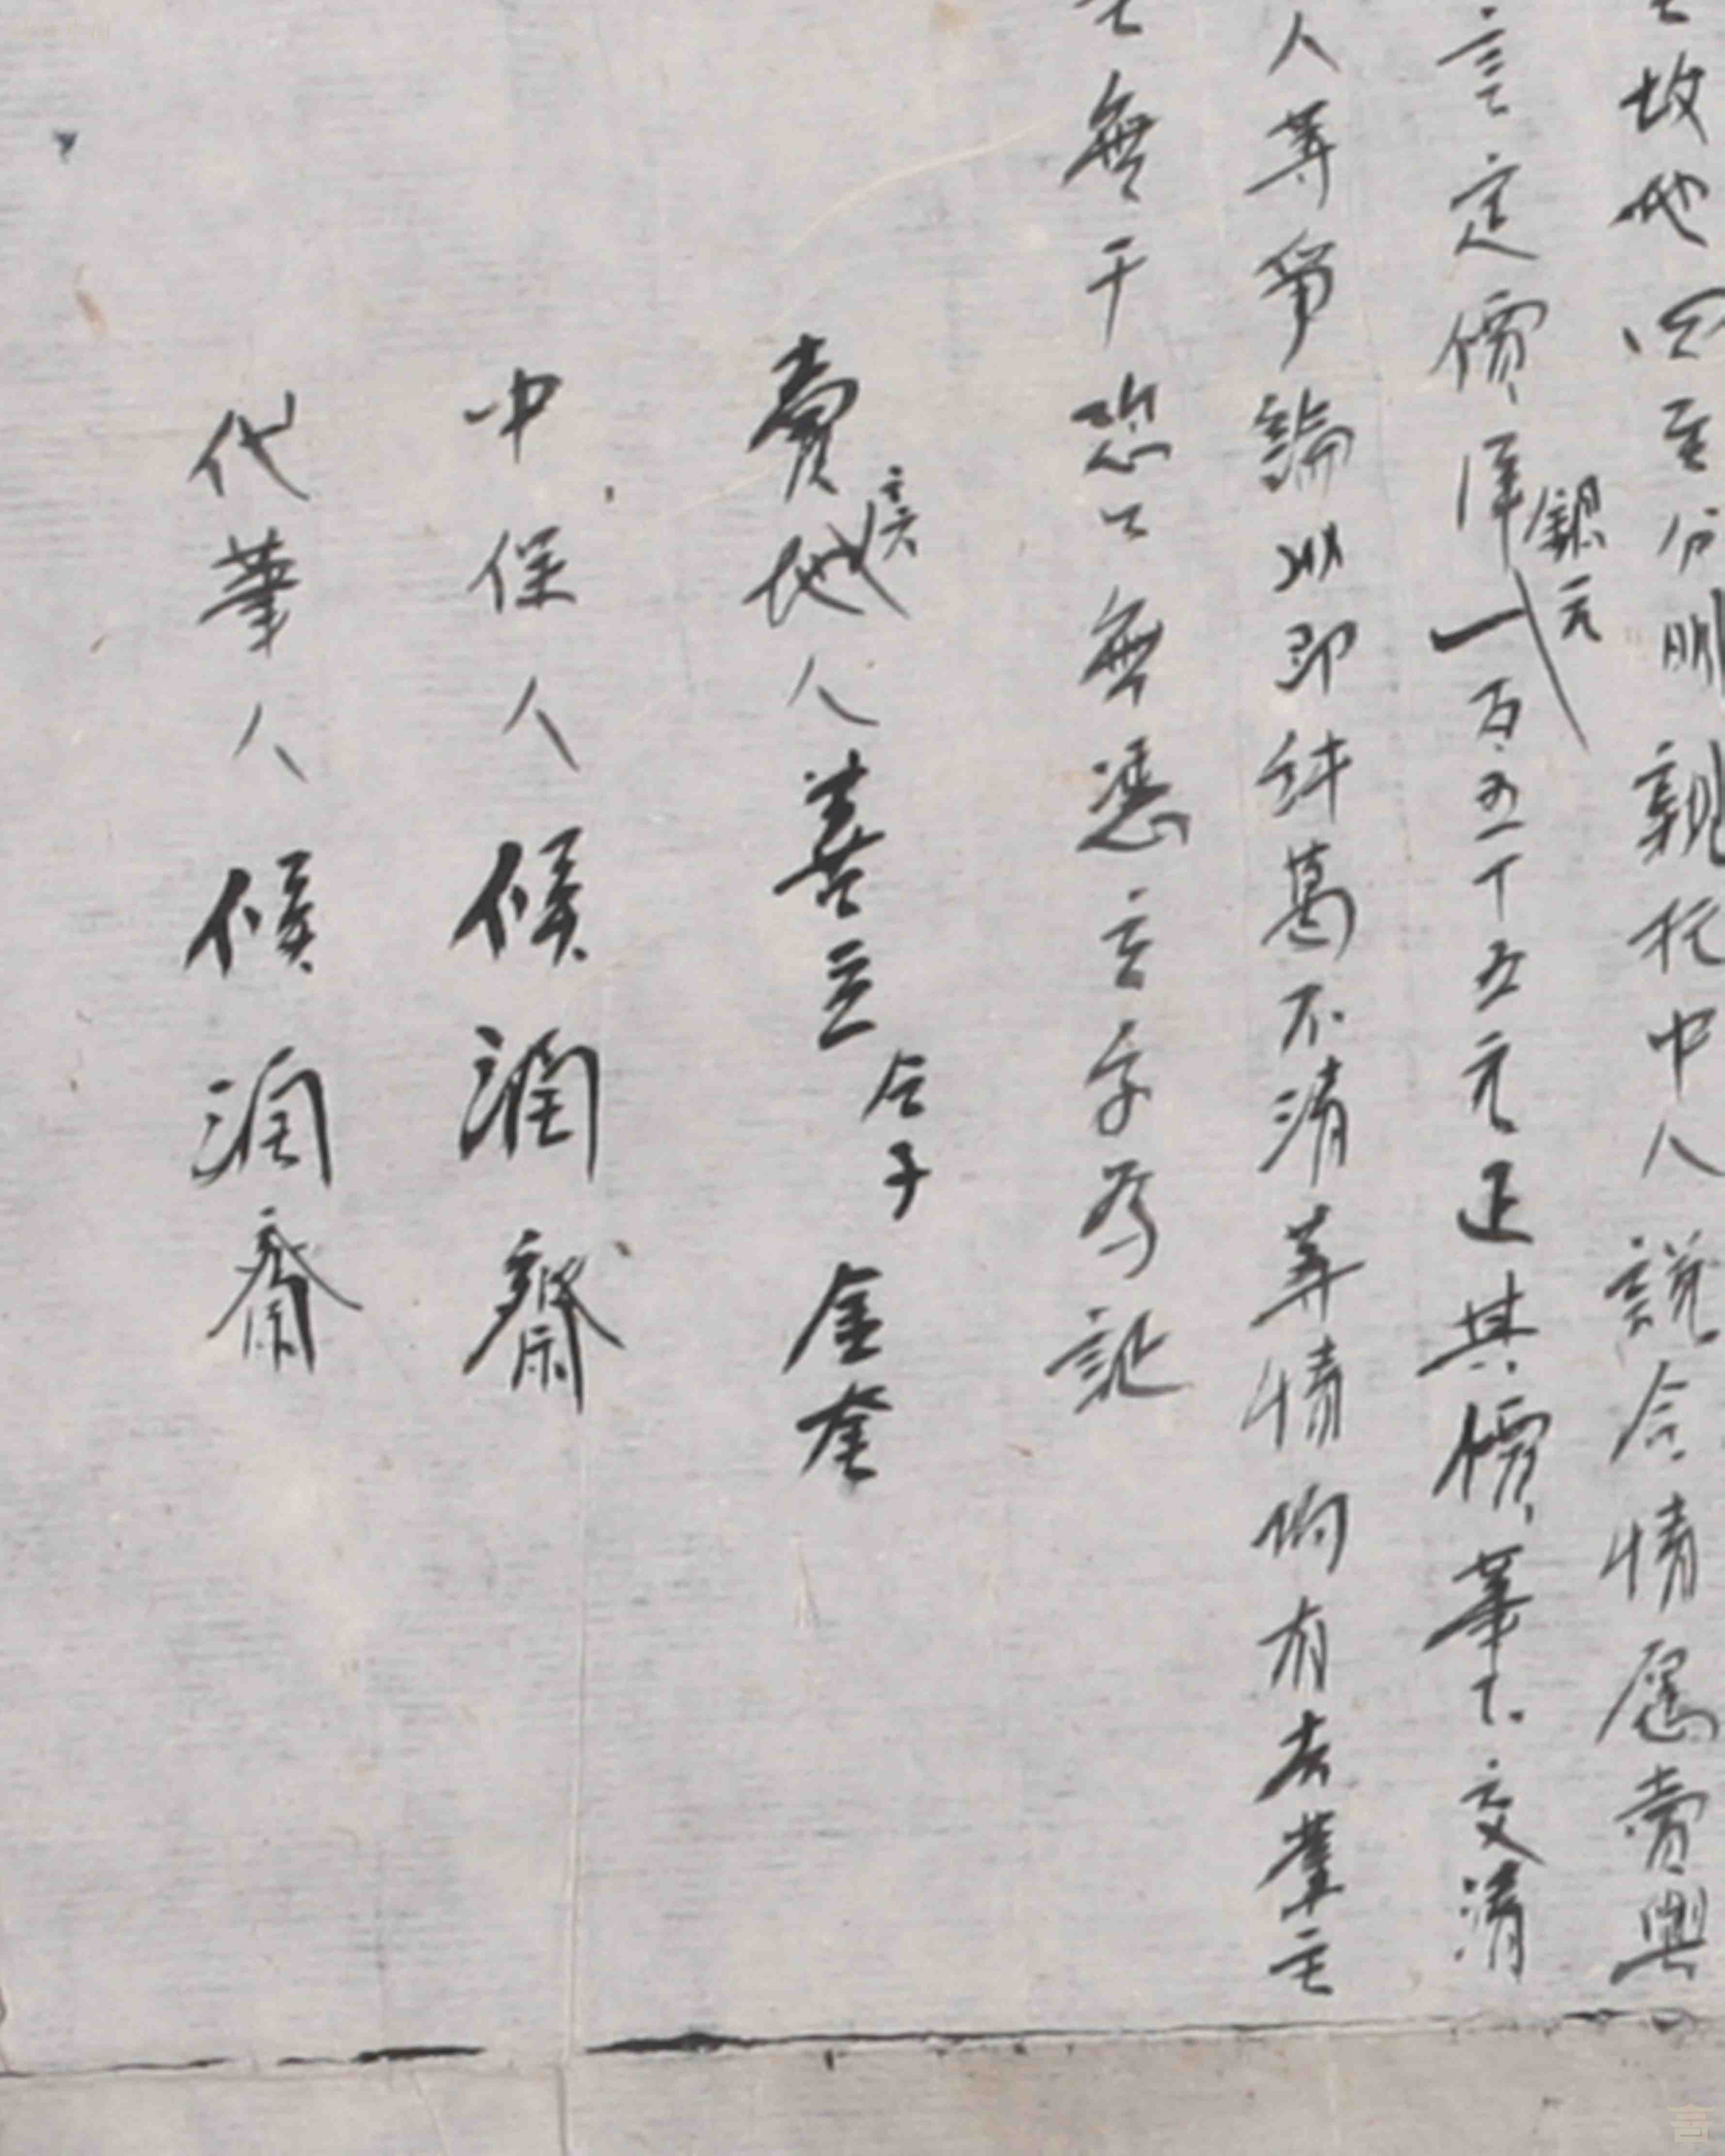 故地四至分明親托中人說合情愿賣與
言定價洋銀元一百五十五元正其價筆下交清
人等爭論以即纤葛不清等情均有去業主
無干恐口無憑立字為証
賣地人姜立言仝子金奎
中保人候潤齋
代筆人候润斎